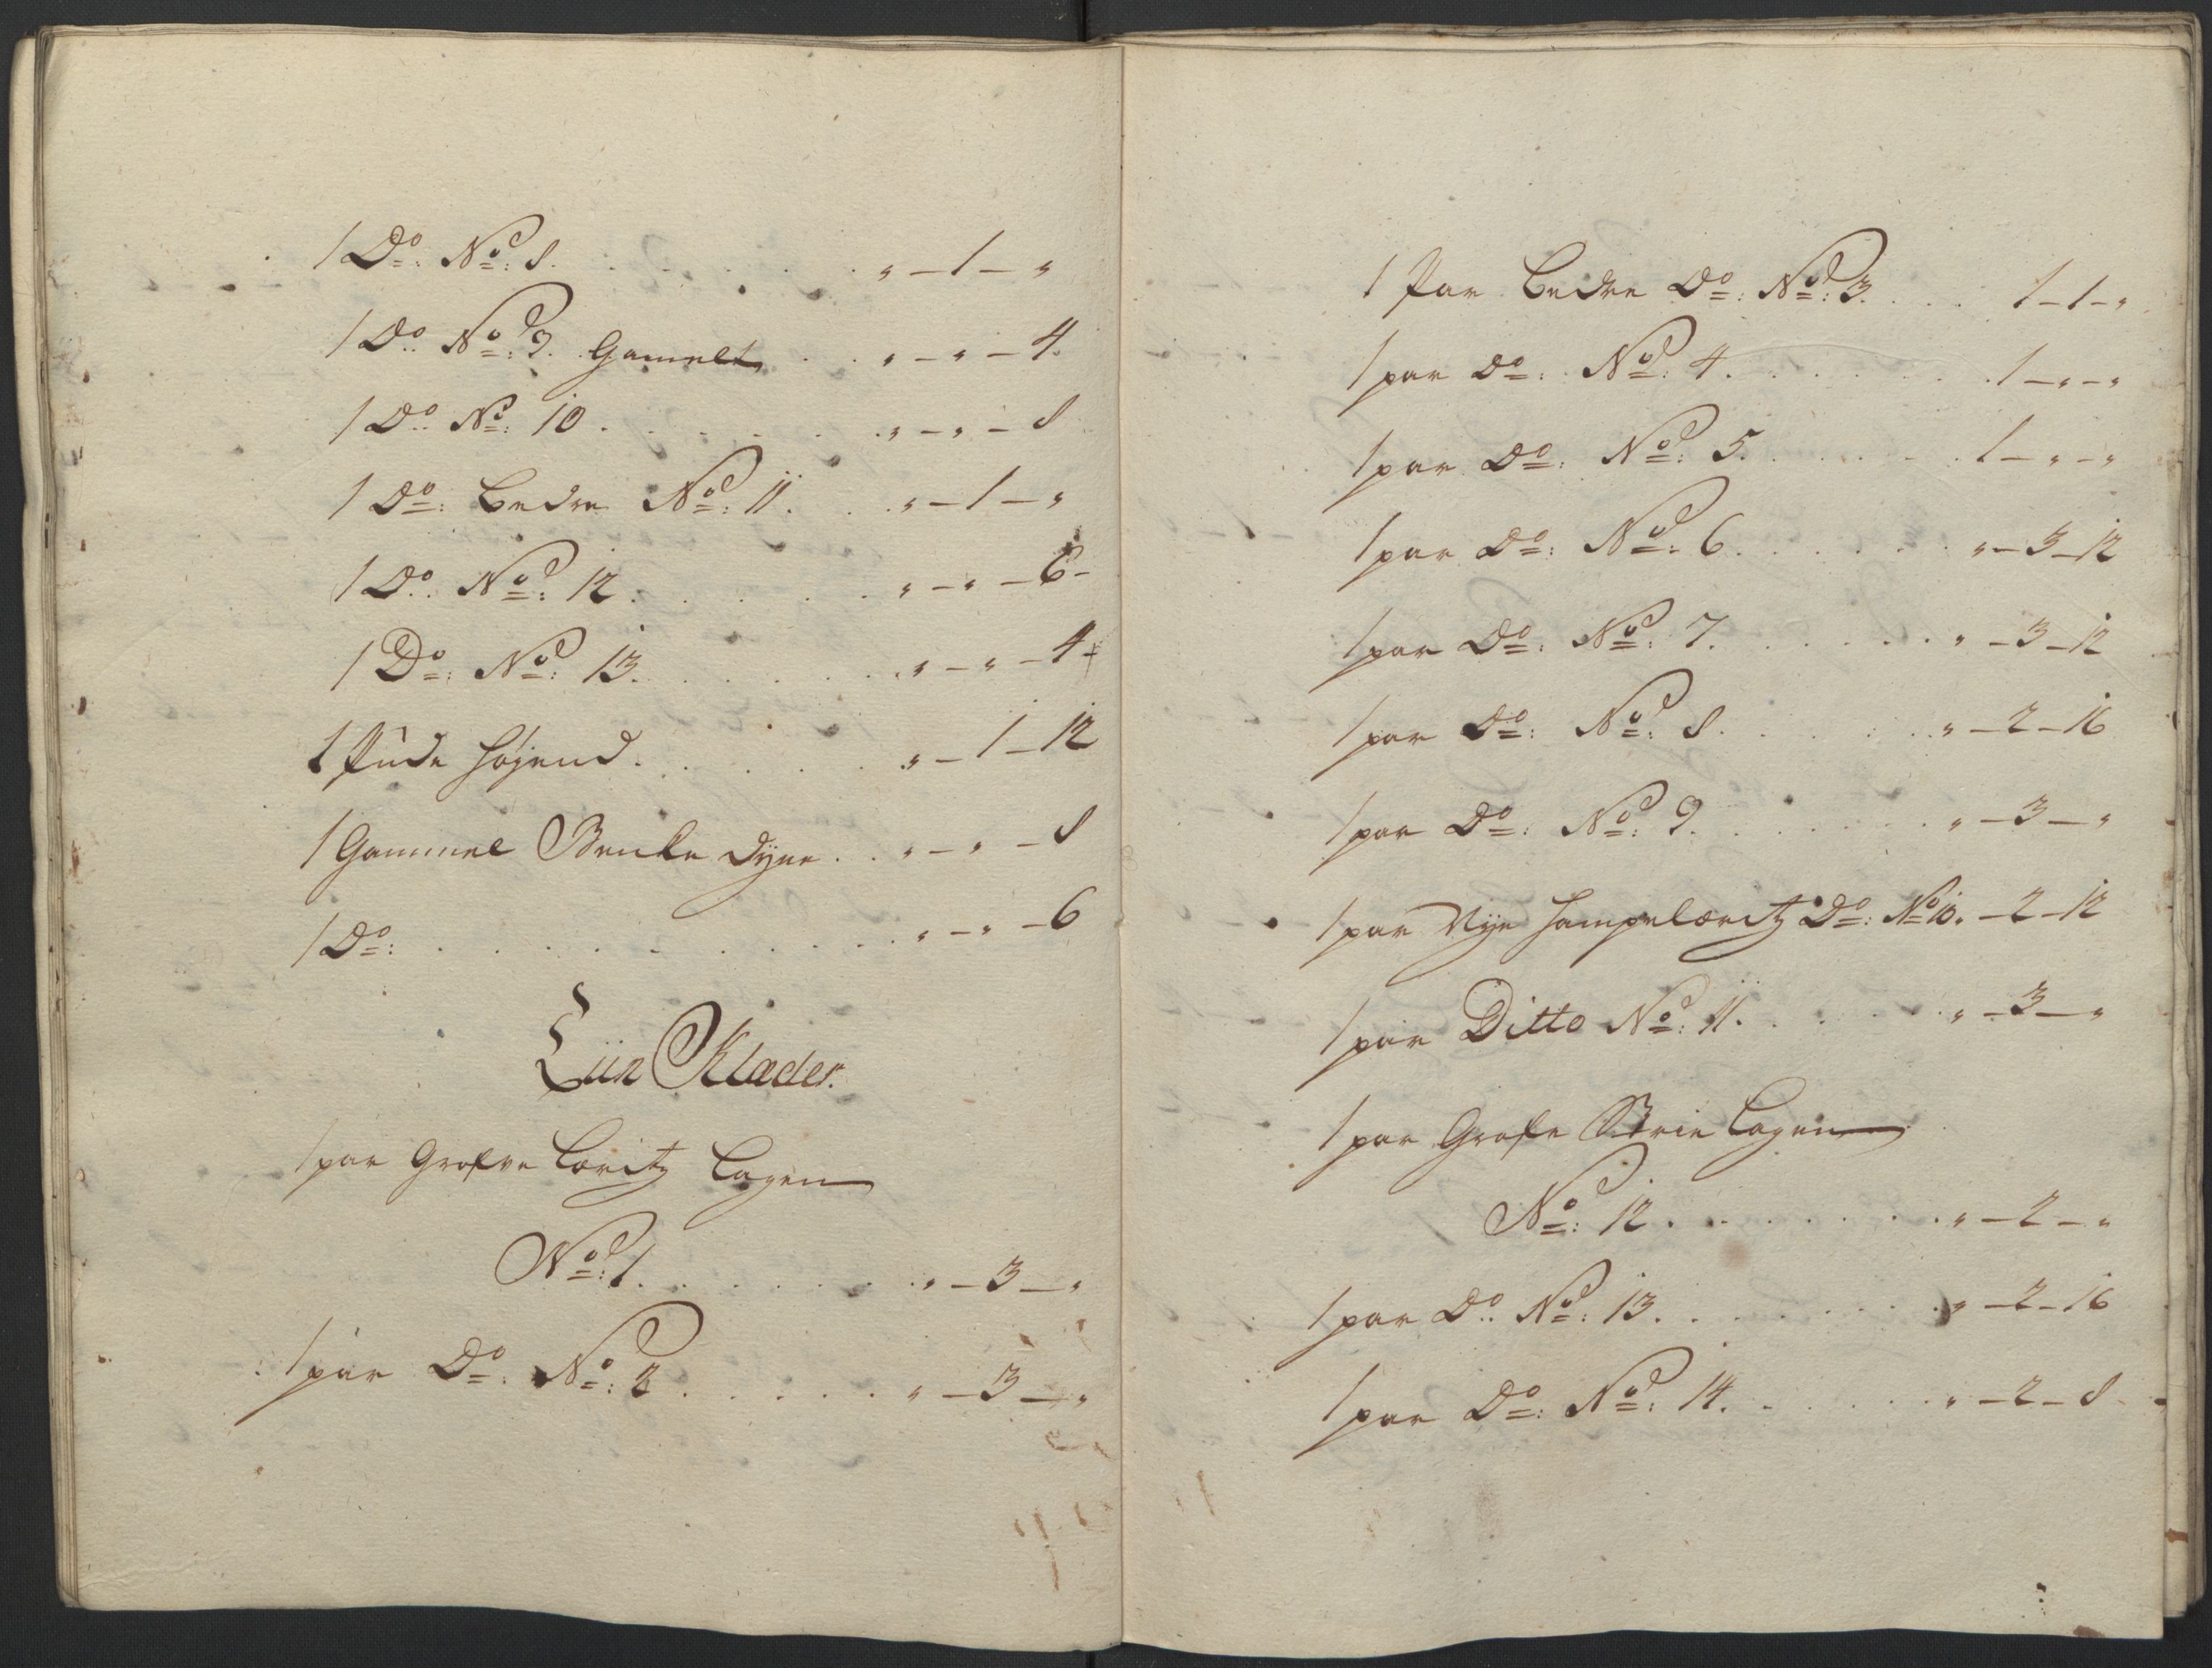 1 Do: No: 8. . . . . . „ – 1 – „
1 Do: No: 9. Gamelt . . „ – „ – 4.
1 Do: No: 10 . . . . . „ – „ – 8
1 Do: Bedre No: 11. . . „ – 1 – „
1 Do: No: 12. . . . . „ – „ – 6 –
1 Do: No: 13. . . . . „ – „ – 4 –
1 Pude Høyend . . . . „ – 1 – 12
1 Gammel Benke Dyne . . „ – „ – 8
1 Do: . . . . . . . „ – „ – 6
Liin Klæder.
1 par Grofve Lærritz Lagen
No: 1. . . . . . „ – 3 – „
1 par Do: No: 2 . . . . „ – 3 – „
1 Par Bedre Do: No: 3. . . 1 – 1 – „
1 par Do: No: 4. . . . . 1 – „ – „
1 par Do: No: 5. . . . . 1 – „ – „
1 par Do: No: 6. . . . . „ – 3 – 12
1 par Do: No: 7. . . . . „ – 3 – 12
1 par Do: No: 8. . . . . „ – 2 – 16
1 par Do: No: 9. . . . . „ – 3 – „
1 par Nye Hampelærritz Do: No 10. „ – 2 – 12
1 par Ditto No: 11. . . . „ – 3 – „
1 par Grofe Strie Lagen
No: 12. . . . . . „ – 2 – „
1 par Do: No: 13. . . . . „ – 2 – 16
1 par Do: No: 14. . . . . „ – 2 – 8